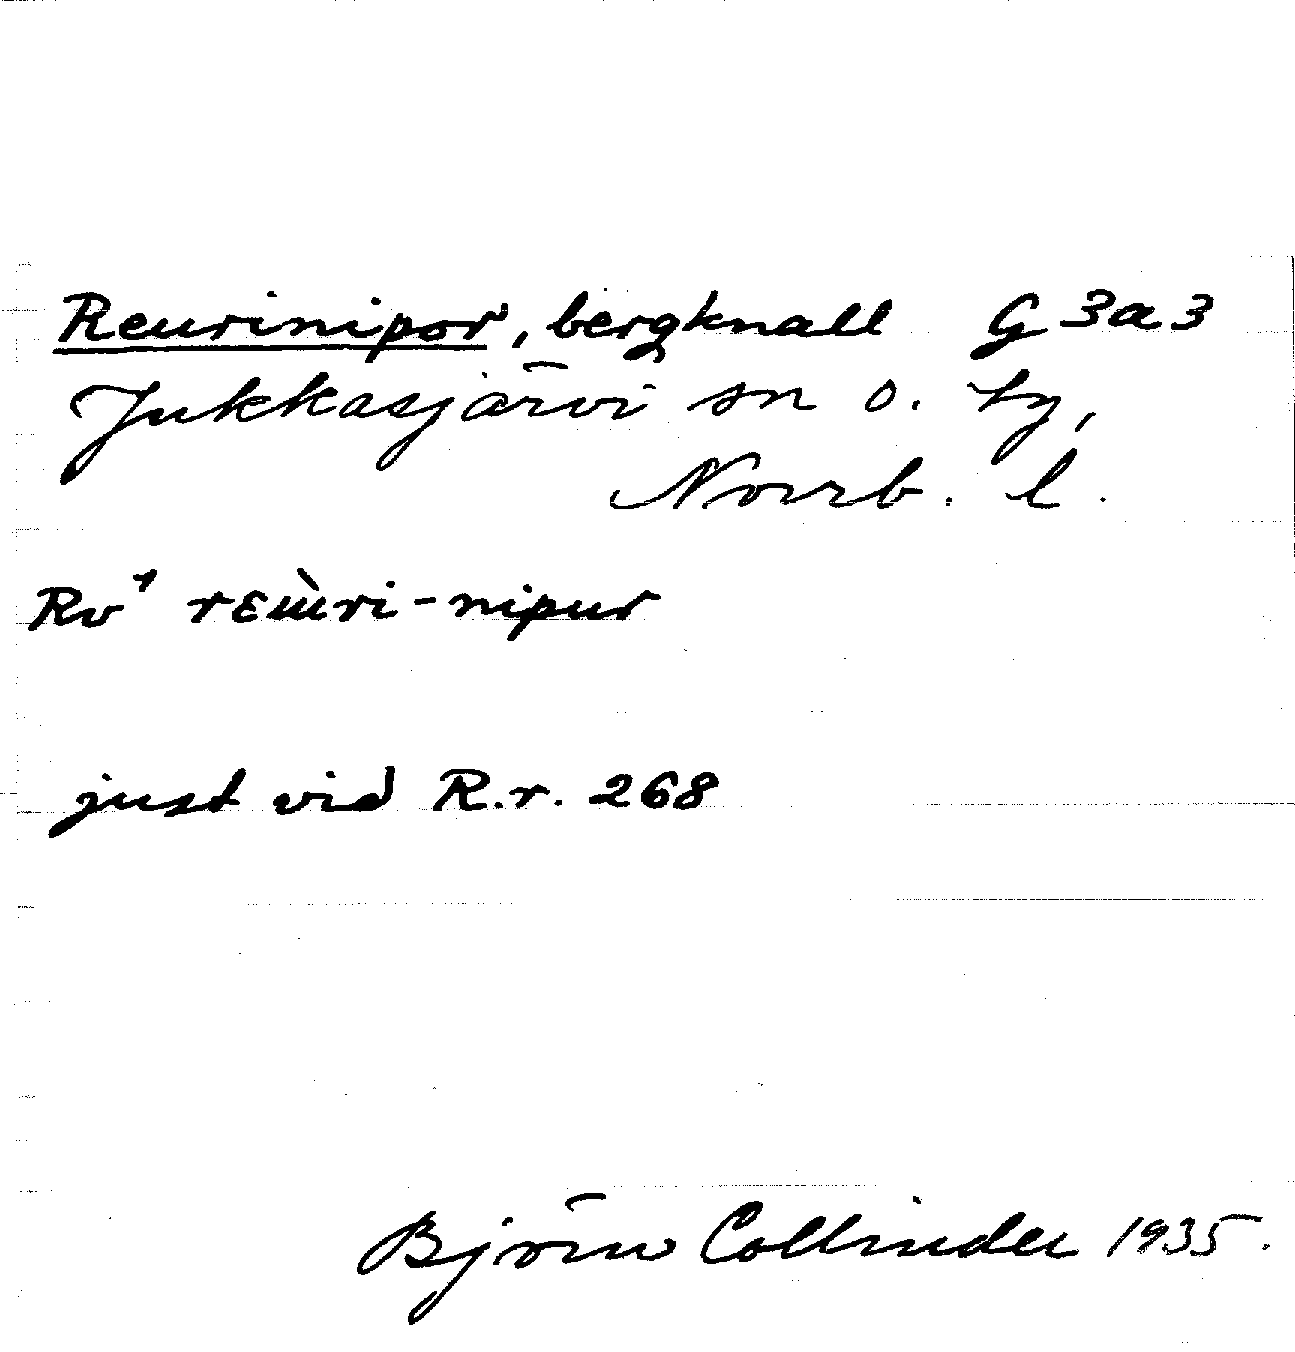 Reurinipor, bergknall G 3a3
Jukkasjärvi sn o. tg,
Norrb. l.
Rv¹ rɛẁri-nipur
just vid R.r. 268
Björn Collinder 1935.